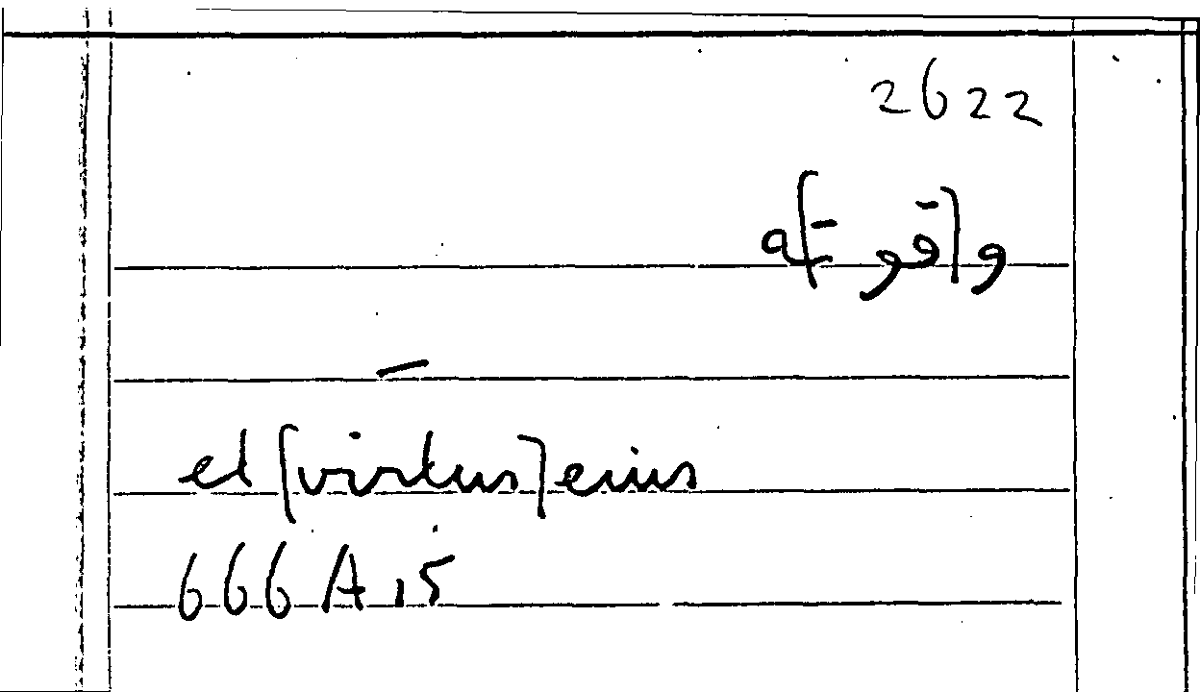 2622
و[قوت]ه
–
et [virtus] eius
666 A 15